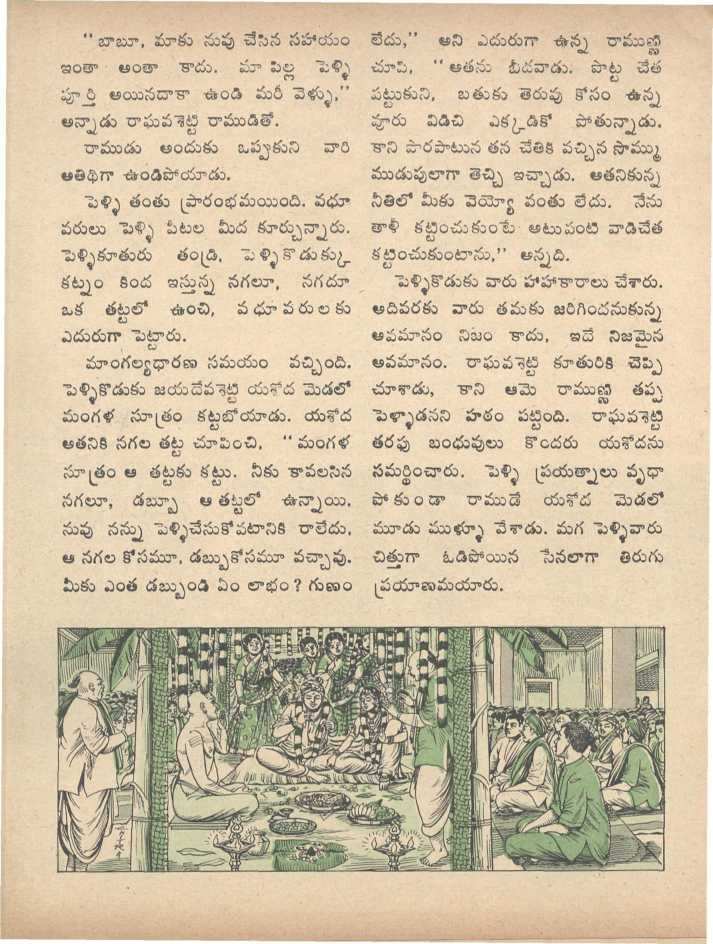 “బాబూ, మాకు నువు చేసిన సహాయం
ఇంతా అంతా కాదు. మా పిల్ల పెళ్ళి
పూర్తి అయినదాకా ఉండి మరీ వెళ్ళు,”
అన్నాడు రాఘవశెట్టి రాముడితో.
రాముడు అందుకు ఒప్పుకుని వారి
అతిథిగా ఉండిపోయాడు.
పెళ్ళి తంతు ప్రారంభమయింది. వధూ
వరులు పెళ్ళి పీటల మీద కూర్చున్నారు.
పెళ్ళికూతురు తండ్రి, పెళ్ళికొడుక్కు
కట్నం కింద ఇస్తున్న నగలూ, నగదూ
ఒక తట్టలో ఉంచి, వధూవరులకు
ఎదురుగా పెట్టారు.
మాంగల్యధారణ సమయం వచ్చింది.
పెళ్ళికొడుకు జయదేవశెట్టి యశోద మెడలో
మంగళ సూత్రం కట్టబోయాడు. యశోద
అతనికి నగల తట్ట చూపించి, “మంగళ
సూత్రం ఆ తట్టకు కట్టు. నీకు కావలసిన
నగలూ, డబ్బూ ఆ తట్టలో ఉన్నాయి.
నువు నన్ను పెళ్ళిచేసుకోవటానికి రాలేదు,
ఆ నగల కోసమూ, డబ్బుకోసమూ వచ్చావు.
మీకు ఎంత డబ్బుండి ఏం లాభం? గుణం
లేదు,” అని ఎదురుగా ఉన్న రాముణ్ణి
చూపి, “అతను బీదవాడు. పొట్ట చేత
పట్టుకుని, బతుకు తెరువు కోసం ఉన్న
వూరు విడిచి ఎక్కడికో పోతున్నాడు.
కాని పొరపాటున తన చేతికి వచ్చిన సొమ్ము
ముడుపులాగా తెచ్చి ఇచ్చాడు. అతనికున్న
నీతిలో మీకు వెయ్యో వంతు లేదు. నేను
తాళి కట్టించుకుంటే అటువంటి వాడిచేత
కట్టించుకుంటాను,” అన్నది.
పెళ్ళికొడుకు వారు హాహాకారాలు చేశారు.
అదివరకు వారు తమకు జరిగిందనుకున్న
అవమానం నిజం కాదు, ఇదే నిజమైన
అవమానం. రాఘవశెట్టి కూతురికి చెప్పి
చూశాడు, కాని ఆమె రాముణ్ణి తప్ప
పెళ్ళాడనని హఠం పట్టింది. రాఘవశెట్టి
తరఫు బంధువులు కొందరు యశోదను
సమర్థించారు. పెళ్ళి ప్రయత్నాలు వృధా
పోకుండా రాముడే యశోద మెడలో
మూడు ముళ్ళూ వేశాడు. మగ పెళ్ళివారు
చిత్తుగా ఓడిపోయిన సేనలాగా తిరుగు
ప్రయాణమయారు.